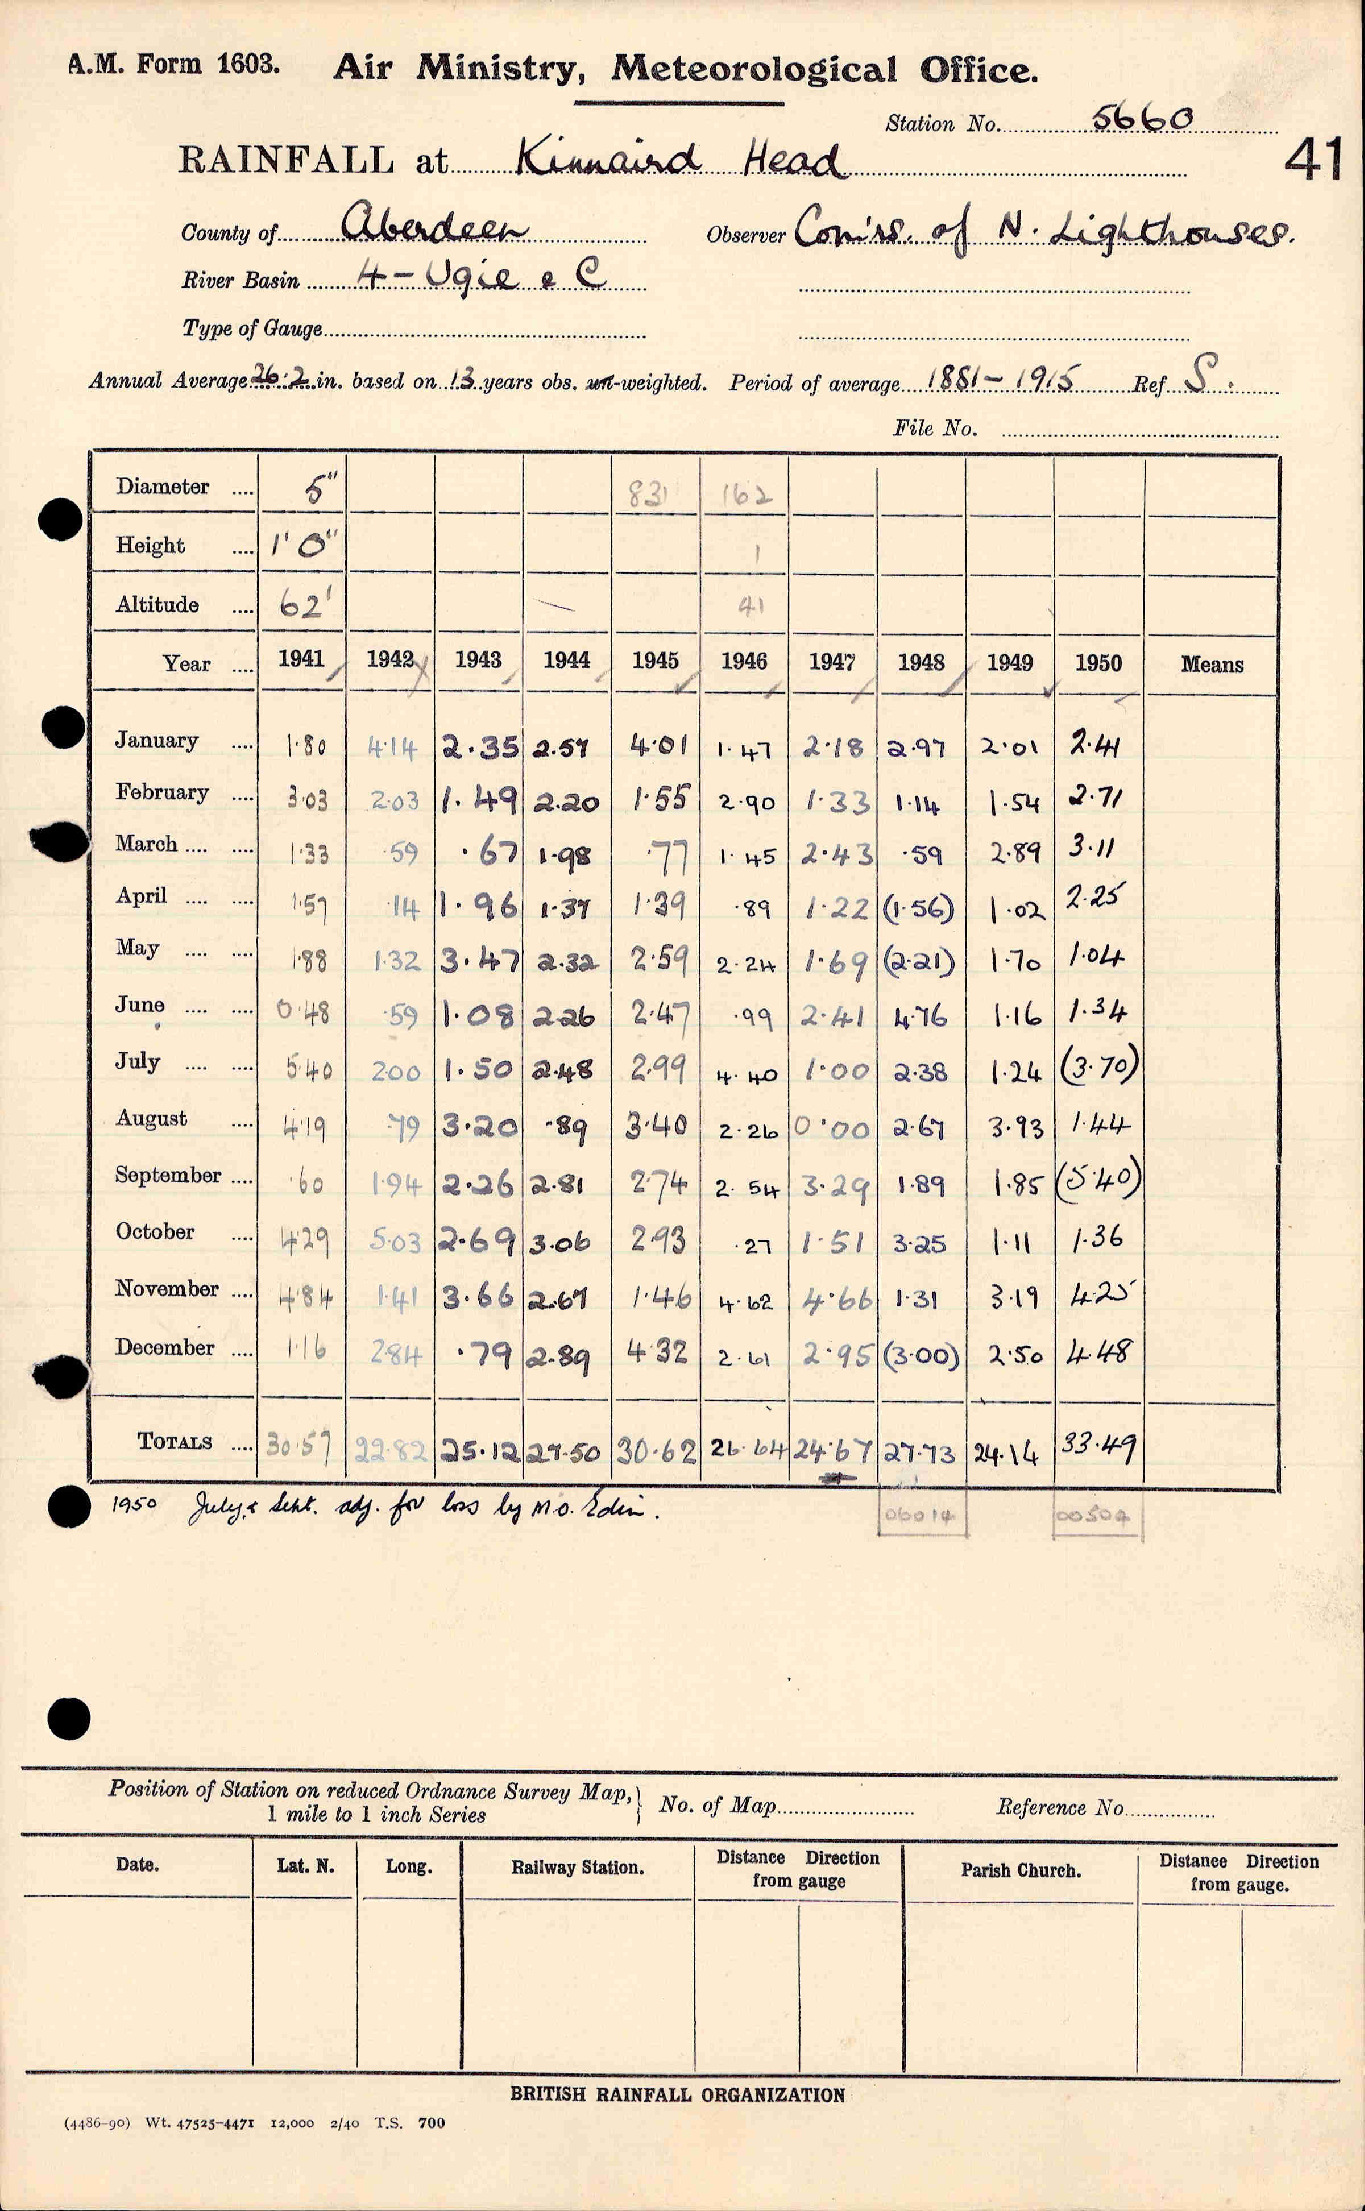 A.M. Form 1603. Air Ministry, Meteorological Office.
Station No. 5660
41
RAINFALL at Kinnaird Head
County of Aberdeen Observer Com'rs. of N. Lighthouses.
River Basin 4 - Ugie & C
Type of Gauge
Annual Average 26.2 in. based on 13 years obs. un-weighted. Period of average 1881-1915 Ref S.
File No.
Diameter .... 5" 831 162
Height .... 1' 0" 1
Altitude .... 62' 41
Year .... 1941 1942 1943 1944 1945 1946 1947 1948 1949 1950 Means
January .... 1.80 4.14 2.35 2.57 4.01 1.47 2.18 2.97 2.01 2.41
February .... 3.03 2.03 1.49 2.20 1.55 2.90 1.33 1.14 1.54 2.71
March .... .... 1.33 .59 .67 1.98 .77 1.45 2.43 .59 2.89 3.11
April .... .... 1.57 .14 1.96 1.37 1.39 .89 1.22 (1.56) 1.02 2.25
May .... .... 1.88 1.32 3.47 2.32 2.59 2.24 1.69 (2.21) 1.70 1.04
June .... .... 0.48 .59 1.08 2.26 2.47 .99 2.41 4.76 1.16 1.34
July .... .... 5.40 2.00 1.50 2.48 2.99 4.40 1.00 2.38 1.24 (3.70)
August .... 4.19 .79 3.20 .89 3.40 2.26 0.00 2.67 3.93 1.44
September .... .60 1.94 2.26 2.81 2.74 2.54 3.29 1.89 1.85 (5.40)
October .... 4.29 5.03 2.69 3.06 2.93 .27 1.51 3.25 1.11 1.36
November .... 4.84 1.41 3.66 2.67 1.46 4.62 4.66 1.31 3.19 4.25
December .... 1.16 2.84 .79 2.89 4.32 2.61 2.95 (3.00) 2.50 4.48
TOTALS .... 30.57 22.82 25.12 27.50 30.62 26.64 24.67 27.73 24.14 33.49
1950 July & Sept. adj. for loss by M.O. Edin.
06014 00504
Position of Station on reduced Ordnance Survey Map,
1 mile to 1 inch Series
No. of Map Reference No.
Date. Lat. N. Long. Railway Station. Distance Direction from gauge Parish Church. Distance Direction from gauge.
BRITISH RAINFALL ORGANIZATION
(4486-90) Wt. 47525-4471 12,000 2/40 T.S. 700